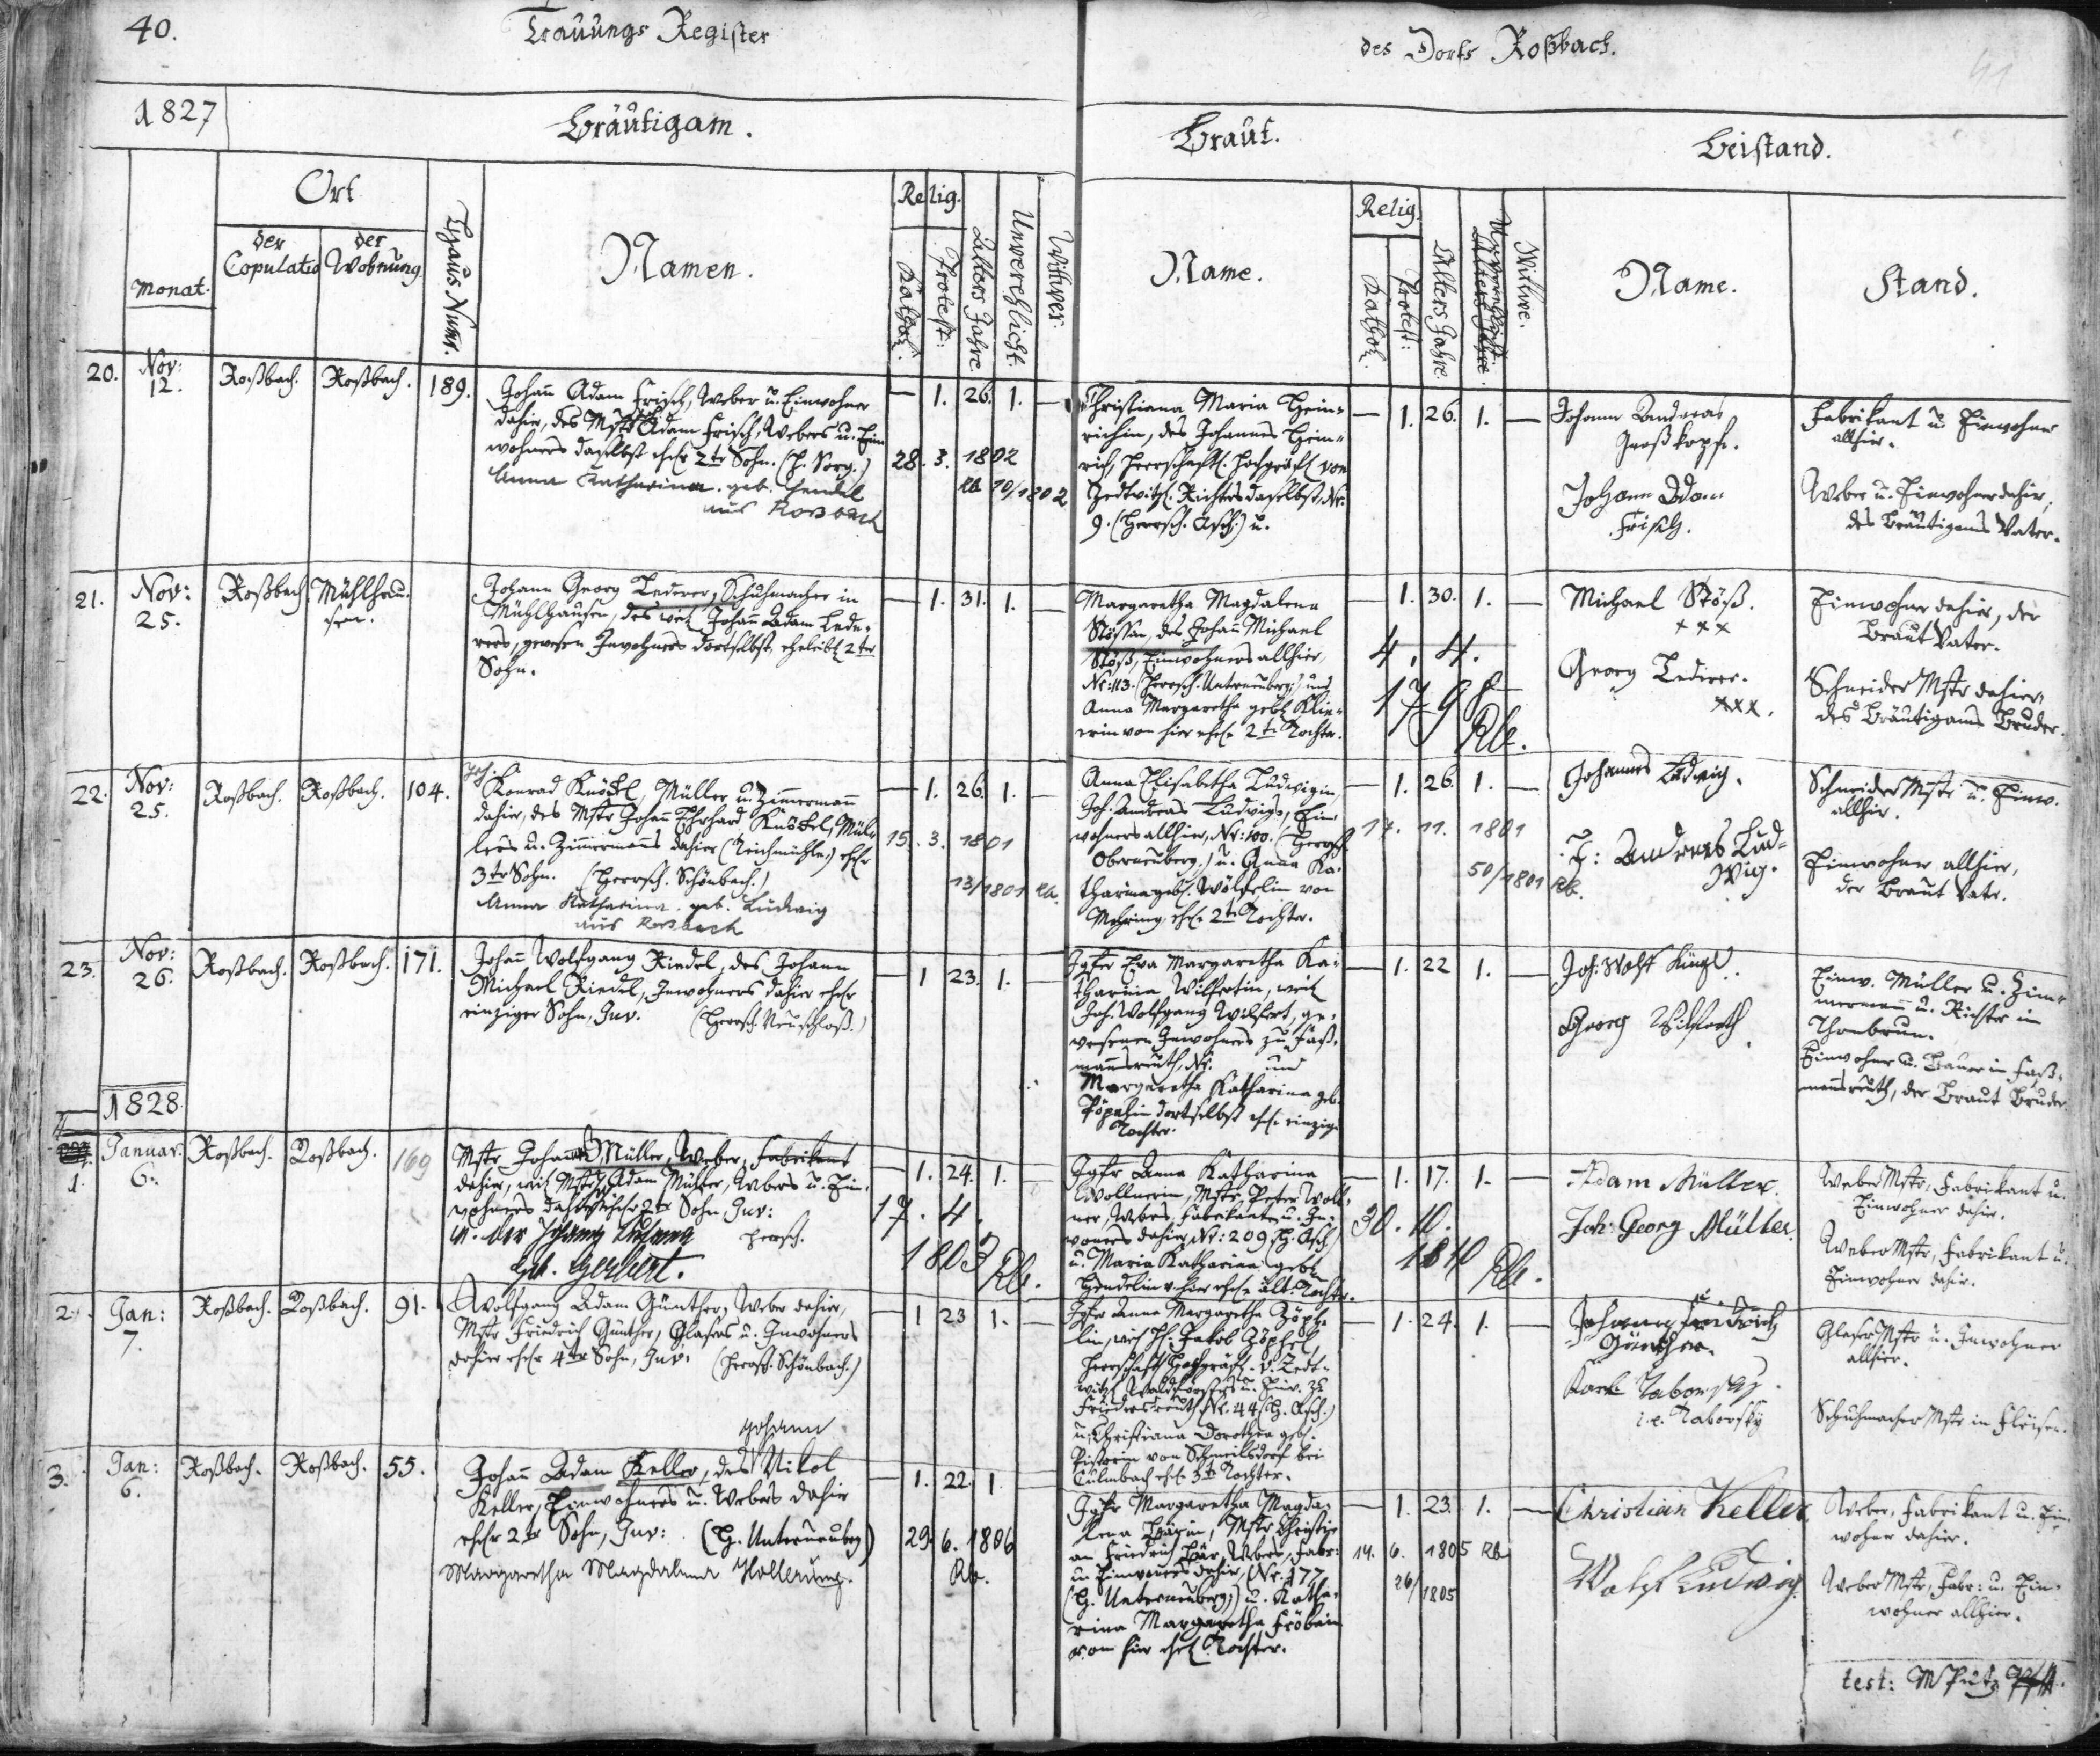 40.
Trauungs Register
des Dorfs Roßbach.
41
1827
Bräutigam.
Braut.
Beistand.
Monat.
Ort
der Copulatio
der Wohnung
Haus Numr.
Namen.
Relig.
Kathol.
Protest:
Alters Jahre
Unverehlicht
Wittwer.
Name.
Relig.
Kathol.
Protest:
Alters Jahre.
Unverehlicht.
Wittwe.
Name.
Stand.
20.
Nov:
12.
Roßbach.
Roßbach.
189.
Johann Adam Frisch, Weber u. Einwohner
dahier, des Mstr Adam Frisch, Webers u. Ein
wohners daselbst ehel. 2ter Sohn. (H. Sorg.)
Anna Katharina geb. Hendel
aus Rossbach
— 1. 26. 1. —
28. 3. 1802
Rb 70/1802
Christiana Maria Hein-
richin, des Johannes Hein-
rich, herrschaftl. hochgräfl. von
Zedtwitz. Richters daselbst, Nr.
9. (Herrsch. Asch.) u.
— 1. 26. 1. —
Johann Andreas
Großkopf.
Johann Adam
Frisch.
Fabrikant u. Einwohner
allhier.
Weber u. Einwohner dahier,
des Bräutigams Vater.
21.
Nov:
25.
Roßbach
Mühlhau-
sen.
Johann Georg Lederer, Schuhmacher in
Mühlhausen, des weil. Johann Adam Lede-
rers, gewesen. Inwohners dortselbst, eheleibl. 2ter
Sohn.
— 1. 31. 1. —
Margaretha Magdalena
Stössin, des Johann Michael
Stöß, Einwohners allhier,
Nr: 113. (Herrsch. Unterneuberg;) und
Anna Margaretha geb. Klie-
erin von hier ehel. 2te Tochter.
— 1. 30. 1. —
4. 4.
1798
Rb.
Michael Stöß.
+++
Georg Lederer.
xxx.
Einwohner dahier, der
Braut Vater.
Schneider Mstr dahier,
des Bräutigams Bruder.
22.
Nov:
25.
Roßbach.
Roßbach.
104.
Joh.
Konrad Knöckl, Müller u. Zimmermann
dahier, des Mstr Johann Ehrhard Knöckel, Mül-
lers u. Zimmermanns dahier (Teichmühle.) ehel.
3ter Sohn. (Herrsch. Schönbach.)
Anna Katharina geb. Ludwig
aus Rossbach
— 1. 26. 1. —
15. 3. 1801
13/1801 Rb.
Anna Elisabetha Ludwigin,
Joh. Andreas Ludwigs, Ein-
wohners allhier, Nr: 100. (Herrsch.
Oberneuberg.) u. Anna Ka-
tharina geb. Wölfelin von
Mehring, ehel. 2te Tochter.
— 1. 26. 1. —
17. 11. 1801
50/1801 Rb.
Johannes Ludwig.
J: Andreas Lud-
wig.
Schneider Mstr u. Einw.
allhier.
Einwohner allhier,
der Braut Vater.
23.
Nov:
26.
Roßbach.
Roßbach.
171.
Johann Wolfgang Riedel, des Johann
Michael Riedel, Inwohners dahier ehel.
einziger Sohn, Juv. (Herrsch. Neuschloß.)
— 1 23. 1. —
Jgfr Eva Margaretha Ka-
tharina Wilfertin, weil.
Joh. Wolfgang Wilfert, ge-
wesenen Inwohners zu Faß-
mannsreuth, Nr. und
Margaretha Katharina geb.
Zöphelin dortselbst ehel. einzige
Tochter.
— 1. 22 1. —
Joh. Wolf Künzl.
Georg Wilferth.
Einw. Müller u. Zim-
mermann u. Richter in
Thonbrunn.
Einwohner u. Bauer in Faß-
mannsreuth, der Braut Bruder.
1828.
1.
Januar.
6.
Roßbach.
Roßbach.
169
Mstr Johann Müller, Weber, Fabrikant
dahier, weil. Mstr Adam Müller, Webers u. Ein-
wohners dahier ehel. 2ter Sohn, Juv:
Herrsch.
Geb. Gerbert.
— 1. 24. 1. —
17. 4.
1803
Rb.
Jgfr Anna Katharina
Wollnerin, Mstr. Peter Woll-
ner, Webers, Fabrikanten u. In-
wohners dahier, Nr: 209 (H. Asch.)
u. Maria Katharina geb.
Hendelin v. hier ehel. ält. Tochter.
— 1. 17. 1. —
30. 10.
1810
Rb.
Adam Müller.
Joh. Georg Müller.
Weber Mstr, Fabrikant u.
Einwohner dahier.
Weber Mstr, Fabrikant u.
Einwohner dahier.
2.
Jan:
7.
Roßbach.
Roßbach.
91.
Wolfgang Adam Günther, Weber dahier,
Mstr Friedrich Günther, Glasers u. Inwohners
dahier ehel. 4ter Sohn, Juv: (Herrsch. Schönbach.)
— 1 23 1. —
Jgfr Anna Margaretha Zöphe-
lin, weil. H: Jakob Zöphel
herrschaftl. hochgräfl. v. Zedt-
witz. Waldförsters u. Einw. zu
Friedersreuth, Nr. 44 (H. Asch.)
u. Christiana Dorothea geb.
von Schmeilsdorf bei
Culmbach ehel. 3te Tochter.
— 1. 24. 1. —
Johann Friedrich
Günther.
Karl Taborsky.
i.e. Taborsky
Glaser Mstr u. Inwohner
allhier.
Schuhmacher Mstr in Fleißen.
3.
Jan:
6.
Roßbach.
Roßbach.
55.
Johann
Johann Adam Keller, des Nikol
Keller, Einwohners u. Webers dahier
ehel. 2ter Sohn, Juv: (H. Unterneuberg)
Margaretha Magdalena Hollerung.
— 1. 22. 1. —
29. 6. 1806
Rb.
Jgfr Margaretha Magda-
lena Bärin, Mstr Christi-
an Friedrich Bär, Webers, Fabr:
u. Einwohners dahier, (Nr. 177.
(H. Unterneuberg;) u. Katha-
rina Margaretha Fröbain
von hier ehel. Tochter.
— 1. 23. 1. —
14. 6. 1805 Rb
26/1805
Christian Keller.
Wolf Ludwig.
Weber, Fabrikant u. Ein-
wohner dahier.
Weber Mstr, Fabr: u. Ein-
wohner allhier.
test: